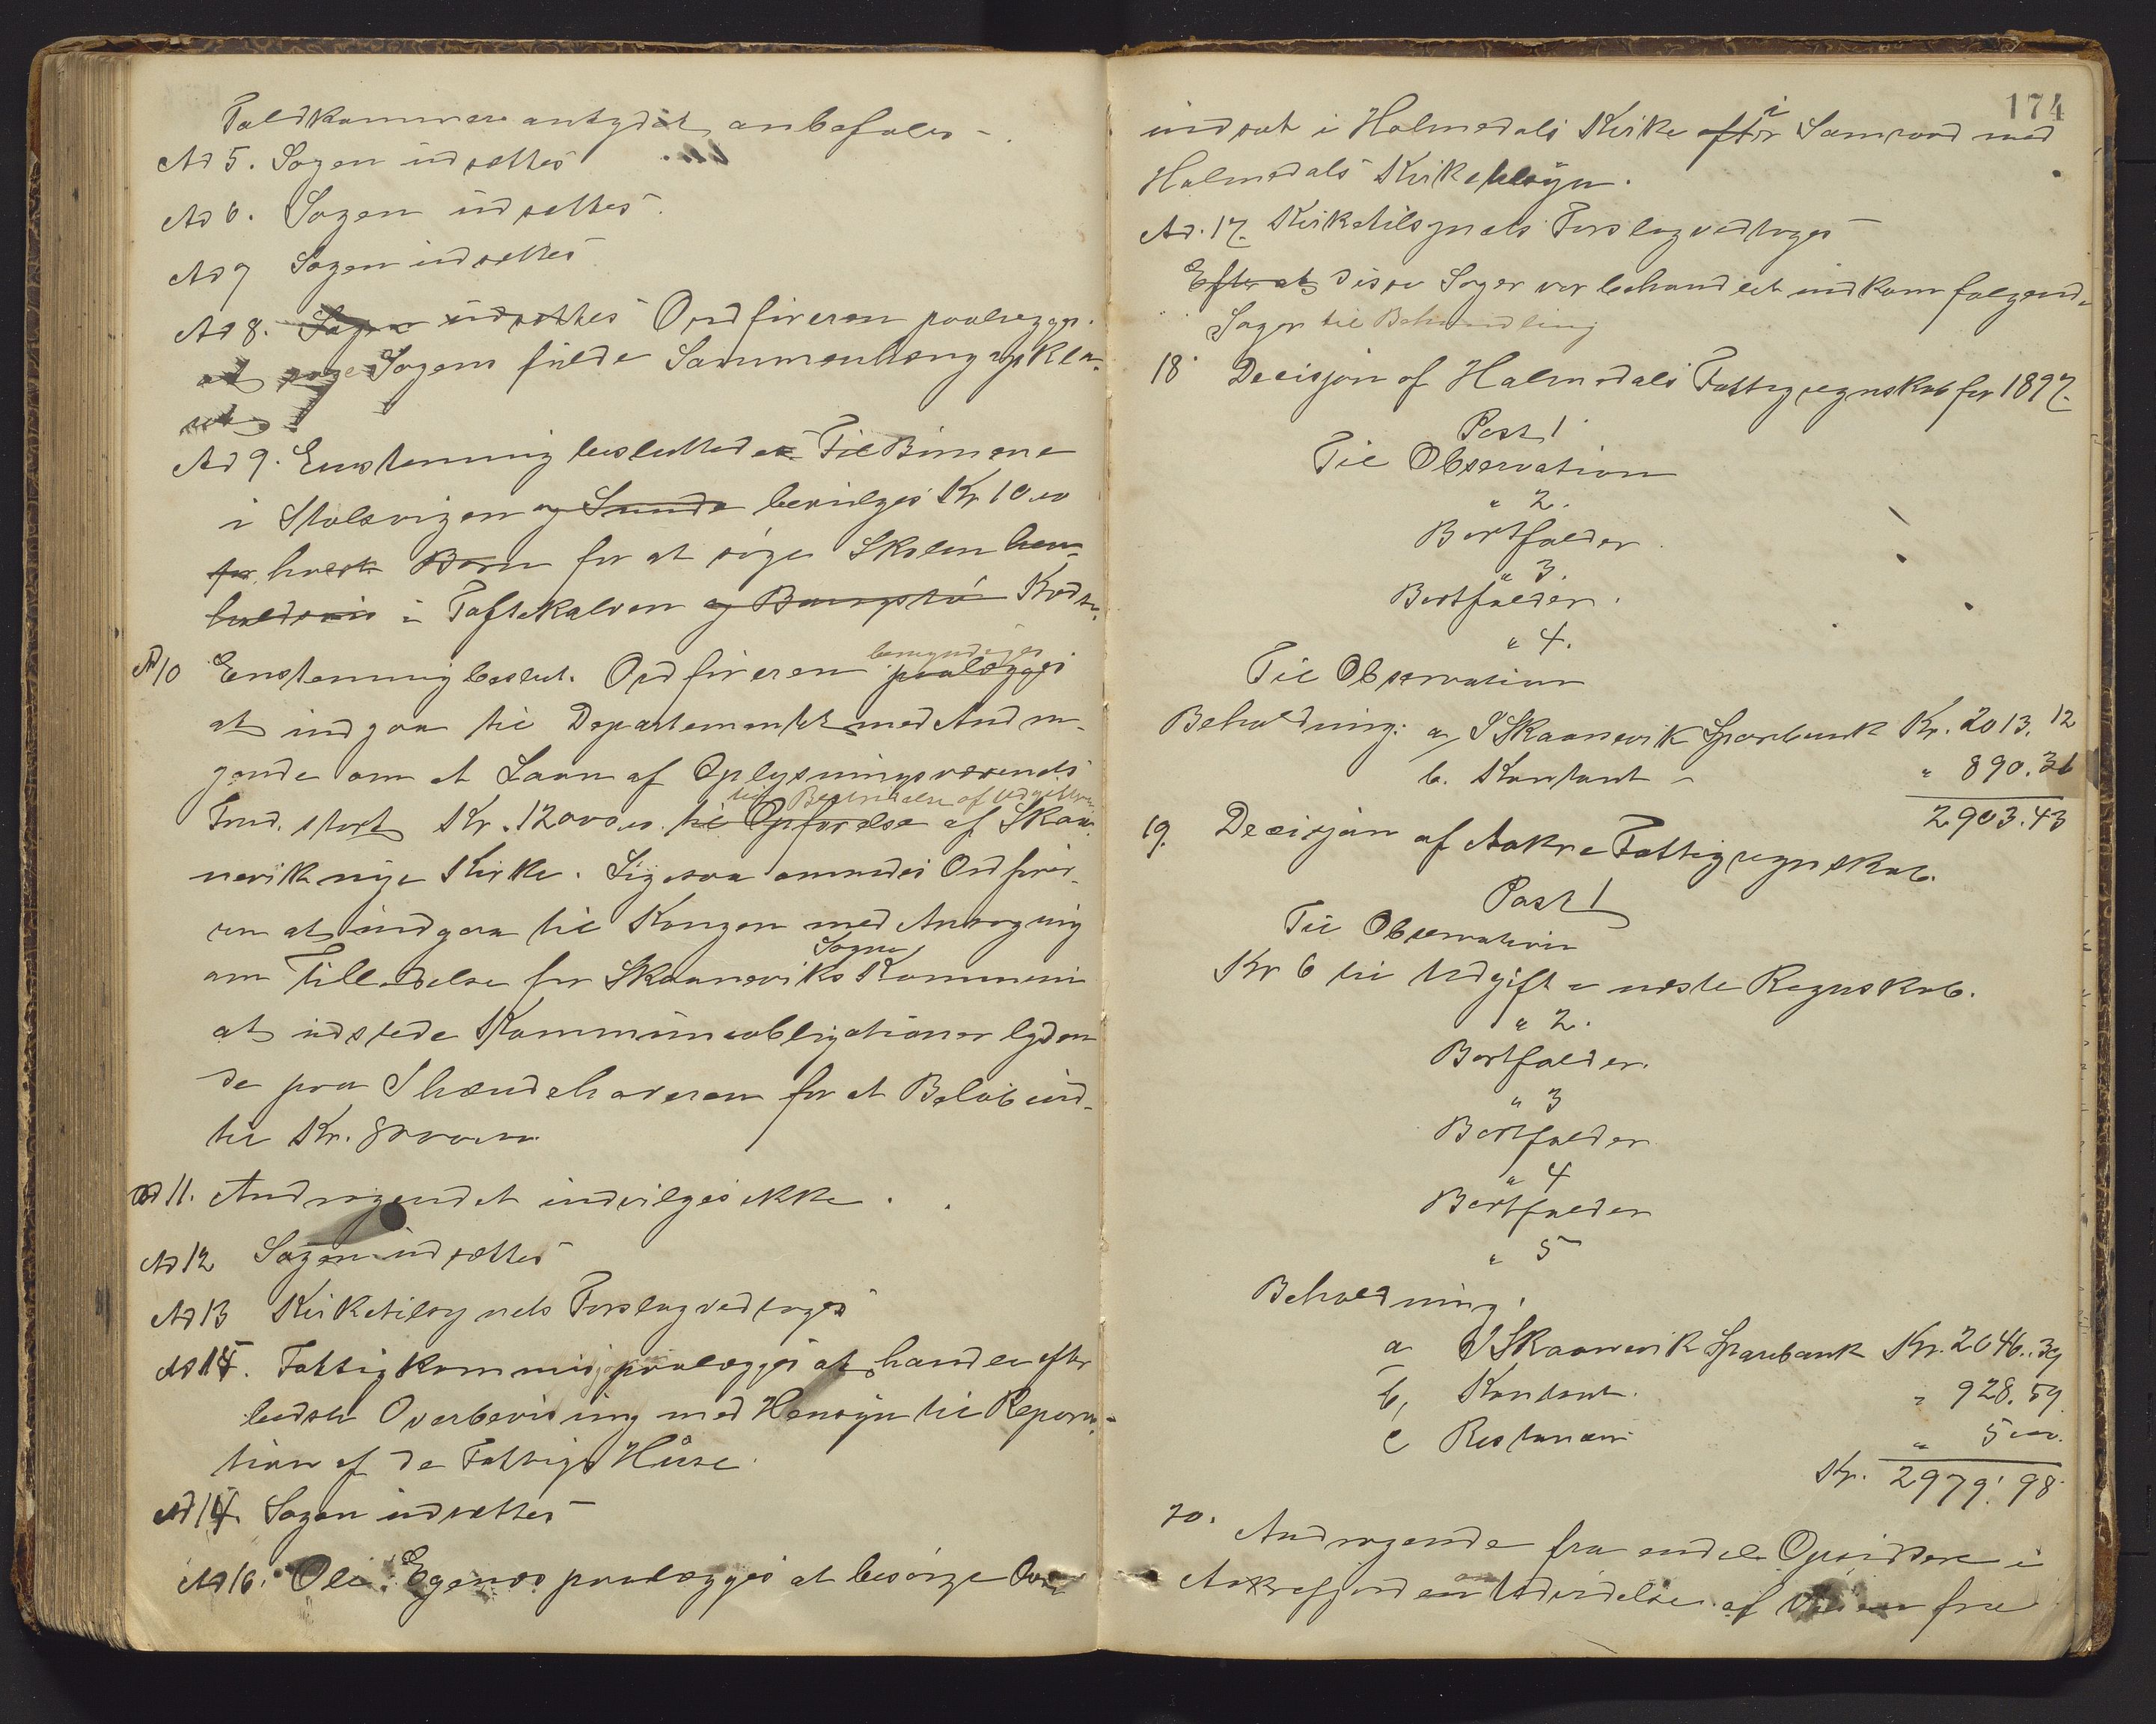 Toldkammere antydet, anbefales.
Ad 5. Sagen udsættes
Ad 6. Sagen udsættes.
Ad 7 Sagen udsættes
Ad 8. Sagen udsættes Ordføreren paalægges
at søge Sagens fulde Sammenhæng opkla-
ret
Ad 9. Enstemmig besluttedes Til Børnene
i Stølsvigen og Sunde bevilges Kr 10.00
for hvert Børn for at søge Skolen hen-
holdsvis i Toftekalven
Ad 10 Enstemmig beslut. Ordføreren paalægges
bemyndiges
at indgaa til Departementet med Andra-
gende om et Laan af Oplysningsvæsenets
til Bestridelse af Udgifterne
Fond, stort Kr. 12000.00 til Opførelse af Skaa-
nevik nye Kirke. Ligesaa anmodes Ordføre-
ren at indgaa til Kongen med Ansøgning
Sogne
om Tilladelse for Skaaneviks Kommune
at udstede Kommuneobligationer lyden
de paa Ihændehaveren for et Beløb ind-
til Kr. 8000.00
Ad 11. Andragendet indvilges ikke.
Ad 12 Sagen udsættes
Ad 13 Kirketilsynets Forslag vedtoges
Ad 15. Fattigkommisjonen paalægges at handle efter
bedste Overbevisning med Hensyn til Repara-
tion af de Fattiges Huse.
Ad 14. Sagen udsættes
Ad 16. Ole Egenes paalægges at besørge Ovn
174
indsat i Holmedals Kirke efter i Samraad med
Holmedals Kirketilsyn.
Ad. 17. Kirketilsynets Forslag vedtoges
Efter at disse Sager var behandlet indkom følgende
Sager til Behandling
18 Decisjon af Holmedals Fattigregnskab for 1897.
Post 1
Til Observation
" 2.
Bortfalder
" 3.
Bortfalder.
" 4.
Til Observation
Beholdning: a, I Skaanevik Sparebank Kr. 2013.12
b. Kontant - " 890.31
2903.43
19. Decisjon af Aakre Fattigregnskab.
Post 1
Til Observation
Kr 6 til Udgift i næste Regnskab.
" 2.
Bortfalder.
" 3
Bortfalder
" 4
Bortfalder
" 5
Beholdning:
a I Skaanevik Sparebank Kr. 2046.39
b, Kontant. " 928.59
c Restancer " 5.00
Kr. 2979.98
20. Andragende fra endel Opsiddere i
Aakrefjorden om Udvidelse af Veien fra